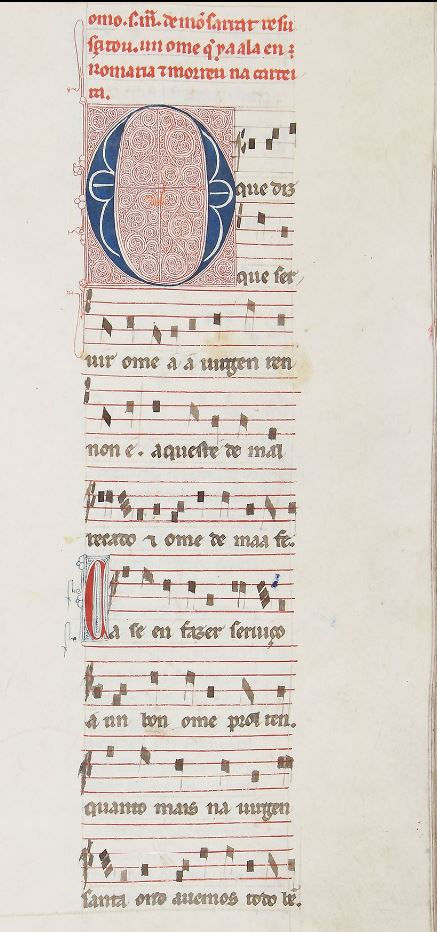 omo. s. m̃. de mõsarrat resu
scitou. un ome q̃ ya ala en
romaria ⁊ morreu na carrei
ra.
O que diz
que ser
uir ome a a uirgen ren
non e. aqueste de mal
recado ⁊ ome de maa fe.
Ca se en fazer seruiço
a un bon ome prol ten.
quanto mais na uirgen
santa ond auemos todo bẽ.